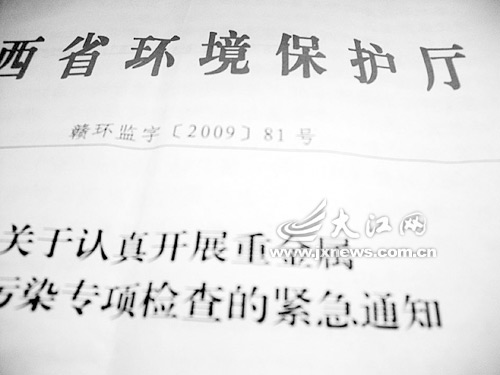 西省环境保护厅
赣环监字〔2009〕81号
大江网
www.jxnews.com.cn
关于认真开展重金属
污染专项检查的紧急通知